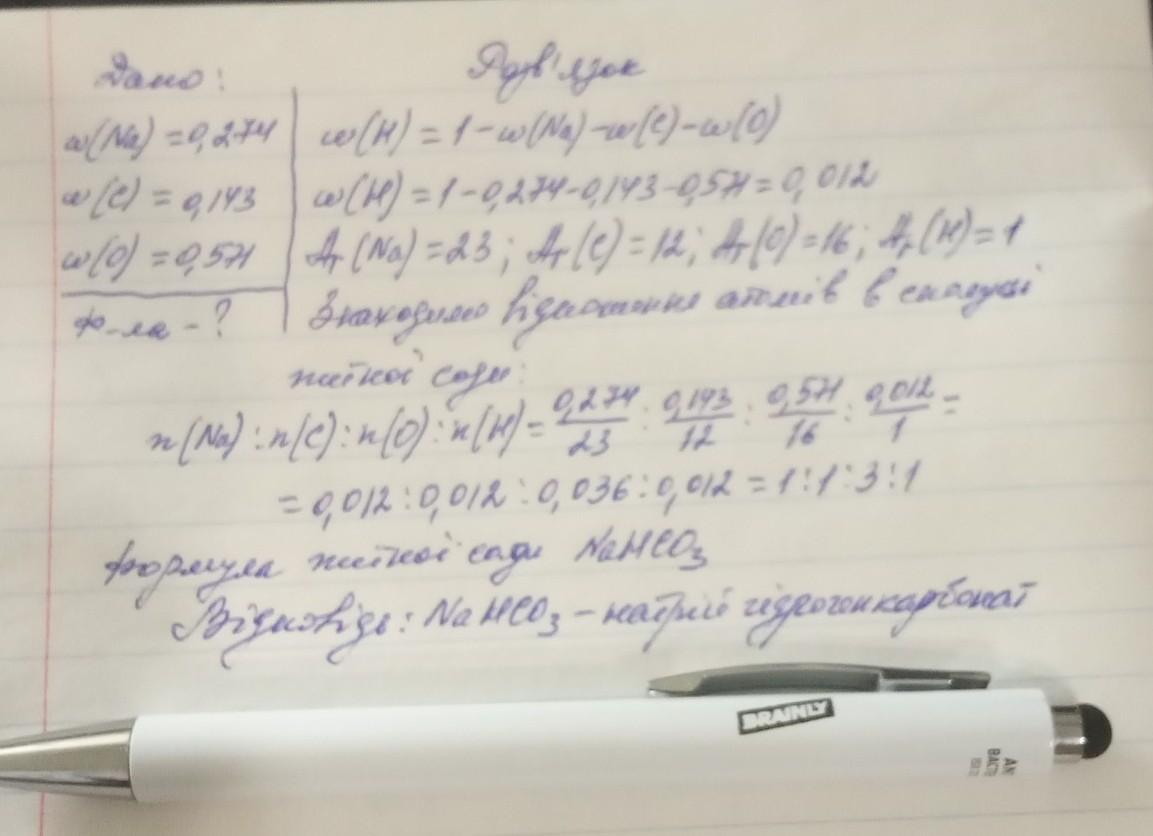 Дано:
Розв'язок
w(Na) = 0,274
w(C) = 0,143
w(O) = 0,571
Ф-ла - ?
w(H) = 1 - w(Na) - w(C) - w(O)
w(H) = 1 - 0,274 - 0,143 - 0,571 = 0,012
Ar(Na) = 23; Ar(C) = 12; Ar(O) = 16; Ar(H) = 1
Знаходимо відношення атомів в сполуці
питної соди:
n(Na) : n(C) : n(O) : n(H) = 0,274/23 : 0,143/12 : 0,571/16 : 0,012/1 =
= 0,012 : 0,012 : 0,036 : 0,012 = 1 : 1 : 3 : 1
формула питної соди NaHCO₃
Відповідь: NaHCO₃ - натрій гідрогенкарбонат
BRAINLY